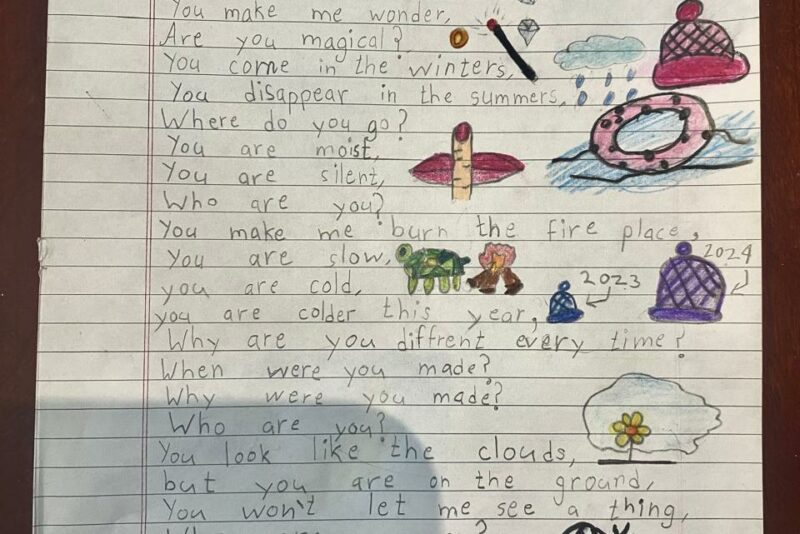 You make me wonder,
Are you magical?
You come in the winters,
You disappear in the summers,
Where do you go?
You are moist,
You are silent,
Who are you?
You make me burn the fire place,
You are slow,
you are cold,
2023
2024
you are colder this year,
Why are you diffrent every time?
When were you made?
Why were you made?
Who are you?
You look like the clouds,
but you are on the ground,
You won't let me see a thing,